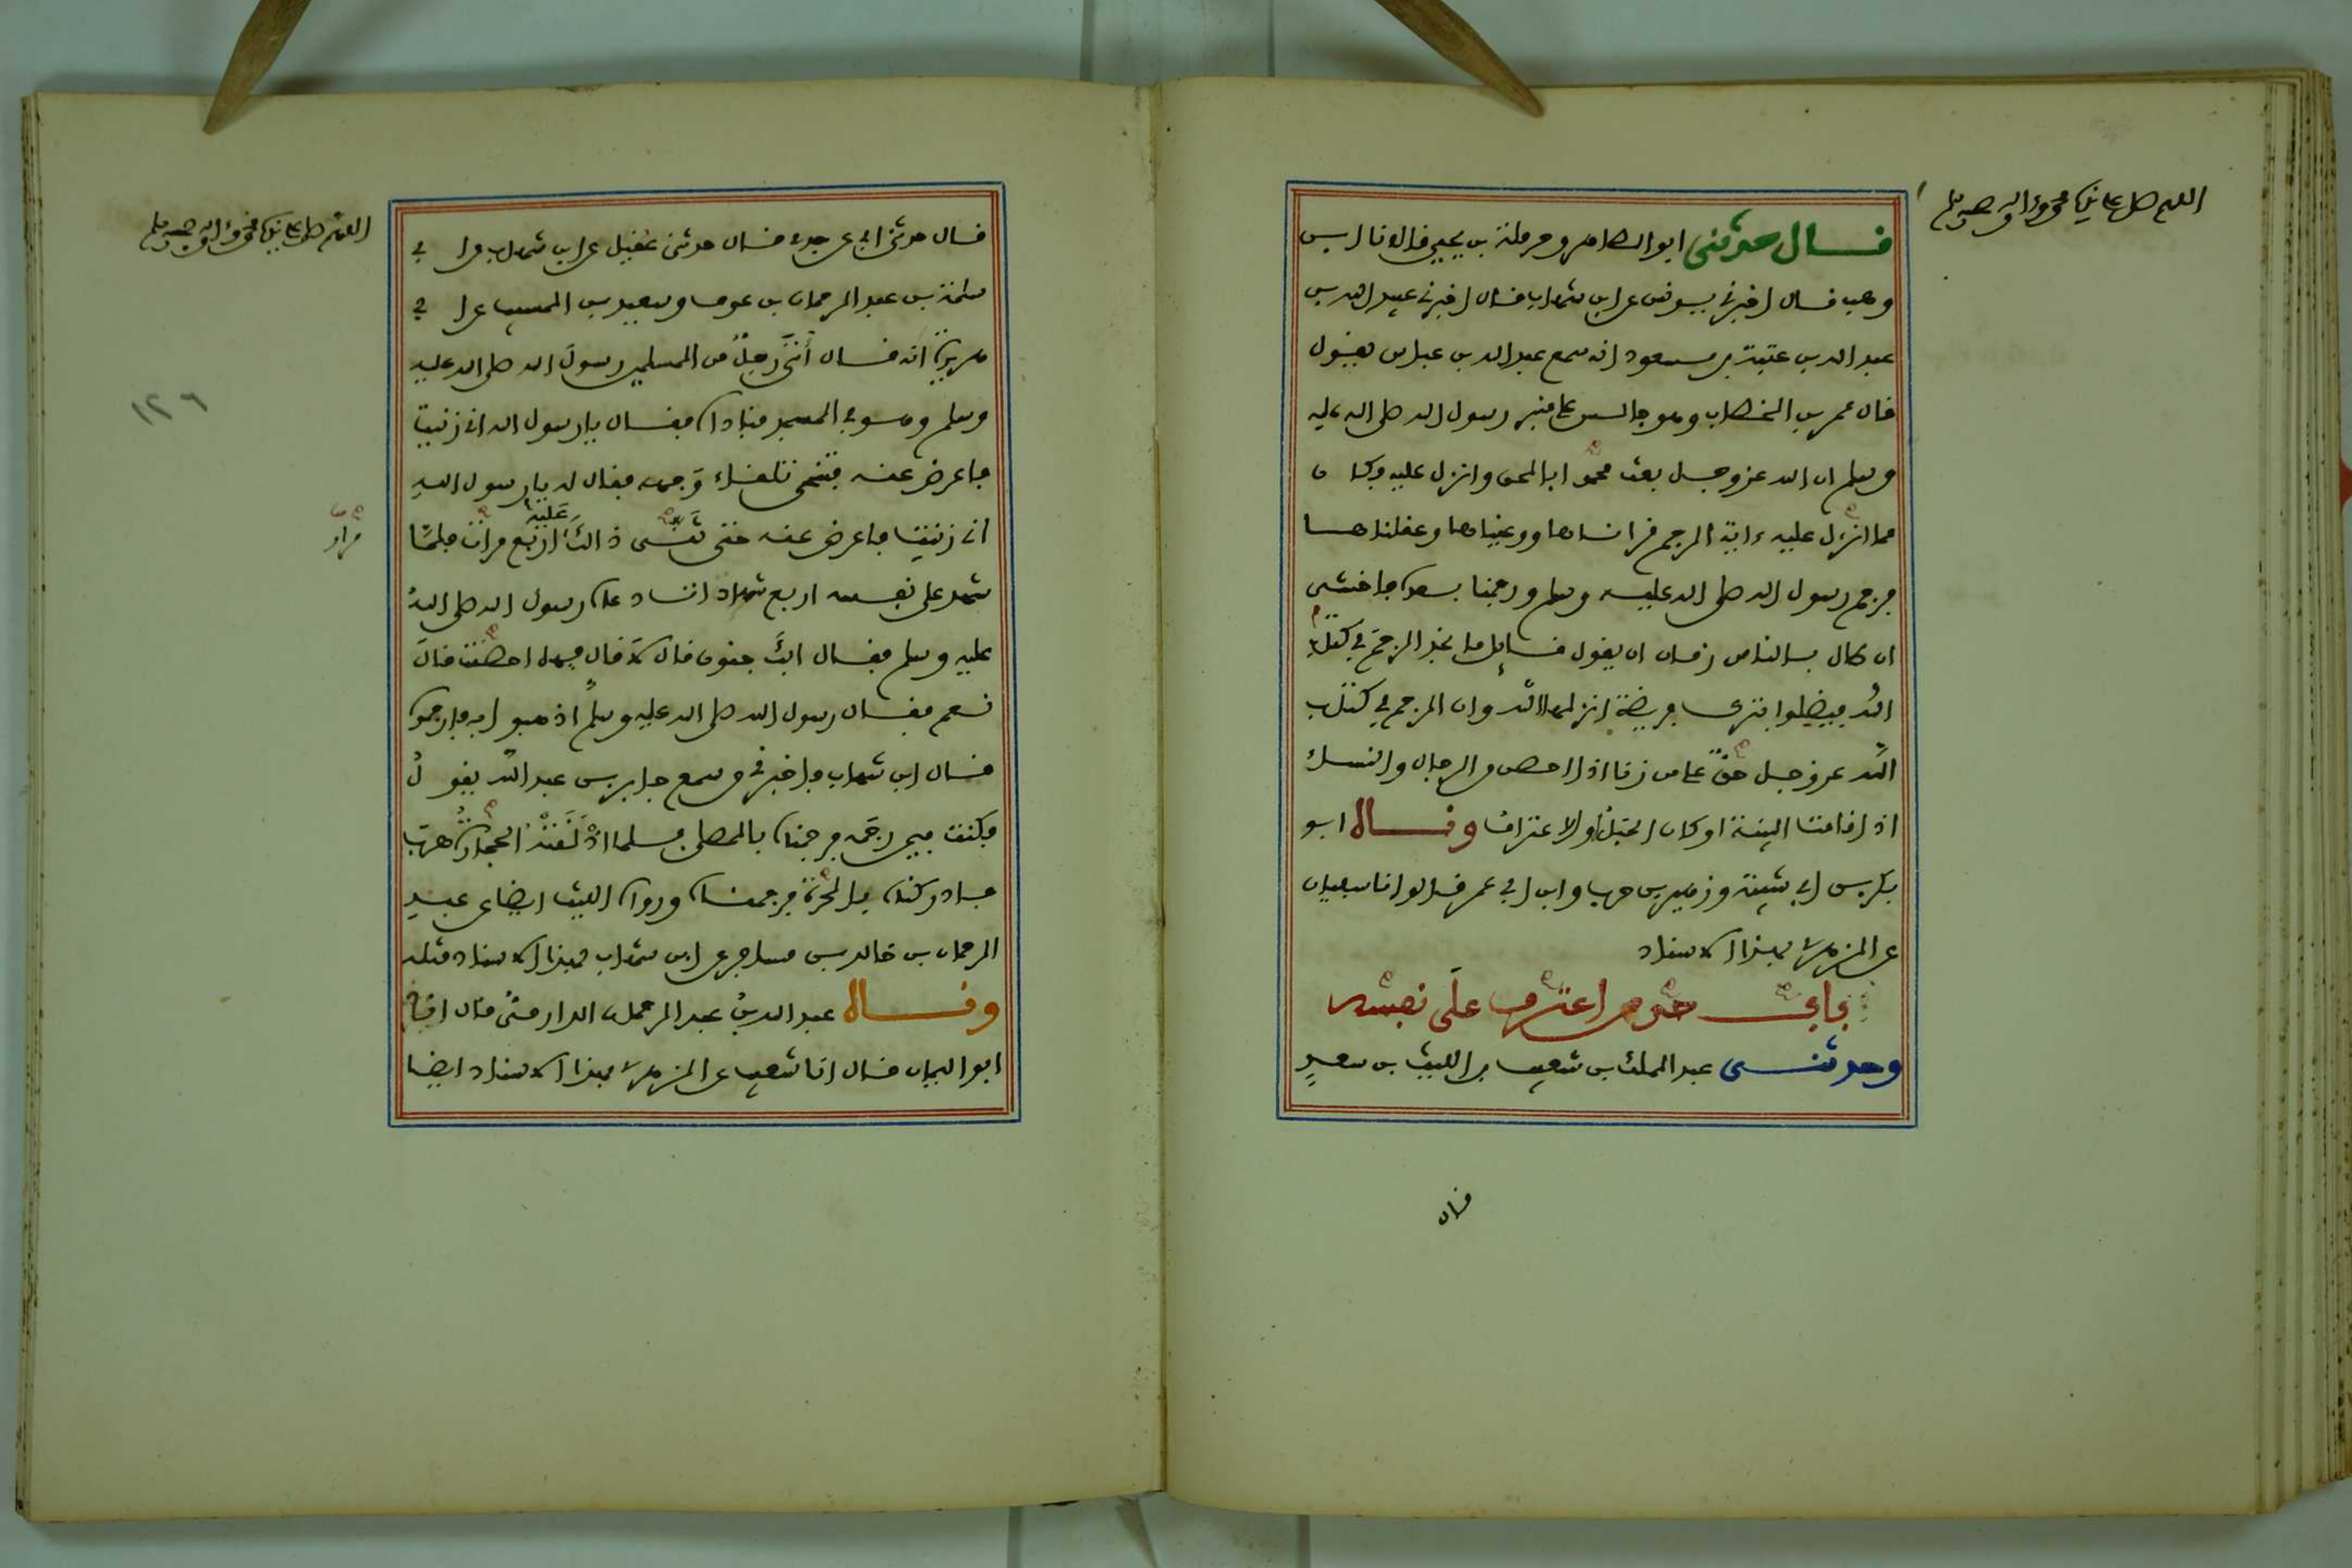 اللهم صل على نبينا محمد وءاله وصحبه وسلم
قال حدثني ابو الطاهر وحرملة بن يحيى قالا نا ابن
وهب قال اخبرني يونس عن ابن شهاب قال اخبرني عبيد الله بن
عبد الله بن عتبة بن مسعود انه سمع عبد الله بن عباس يقول
قال عمر بن الخطاب وهو جالس على منبر رسول الله صلى الله عليه
وسلم ان الله عز وجل بعث محمدا بالحق وانزل عليه وكان
مما انزل عليه ءاية الرجم قرأناها ووعيناها وعقلناها
فرجم رسول الله صلى الله عليه وسلم ورجمنا بعده فاخشى
ان طال بالناس زمان ان يقول قائل ما نجد الرجم في كتاب
الله فيضلوا بترك فريضة انزلها الله وان الرجم في كتاب
الله عز وجل حق على من زنا اذا احصن من الرجال والنساء
اذا قامت البينة او كان الحبل او الاعتراف وقال ابو
بكر بن ابي شيبة وزهير بن حرب وابن ابي عمر قالوا نا سفيان
عن الزهري بهذا الاسناد
باب من اعترف على نفسه
وحدثنى عبد الملك بن شعيب بن الليث بن سعد
قال
اللهم صل على نبينا محمد وءاله وصحبه وسلم
قال حدثني ابي عن جدي قال حدثني عقيل عن ابن شهاب عن ابي
سلمة بن عبد الرحمان بن عوف وسعيد بن المسيب عن ابي
هريرة انه قال أتى رجل من المسلمين رسول الله صلى الله عليه
١٢٦
وسلم وهو في المسجد فناداه فقال يا رسول الله اني زنيت
فاعرض عنه فتنحى تلقاء وجهه فقال له يا رسول الله
اني زنيت فاعرض عنه حتى ثنى ذالك عليه اربع مرات فلما
مرار
شهد على نفسه اربع شهادات دعاه رسول الله صلى الله
عليه وسلم فقال ابك جنون قال لا قال فهل احصنت قال
نعم فقال رسول الله صلى الله عليه وسلم اذهبوا به فارجموه
قال ابن شهاب فاخبرني من سمع جابر بن عبد الله يقول
فكنت فيمن رجمه فرجمناه بالمصلى فلما اذلقته الحجارة هرب
فادركناه بالحرة فرجمناه ورواه الليث ايضا عن عبد
الرحمان بن خالد بن مسافر عن ابن شهاب بهذا الاسناد مثله
وقال عبد الله بن عبد الرحمان الدارمي قال انا
ابو اليمان قال انا شعيب عن الزهري بهذا الاسناد ايضا